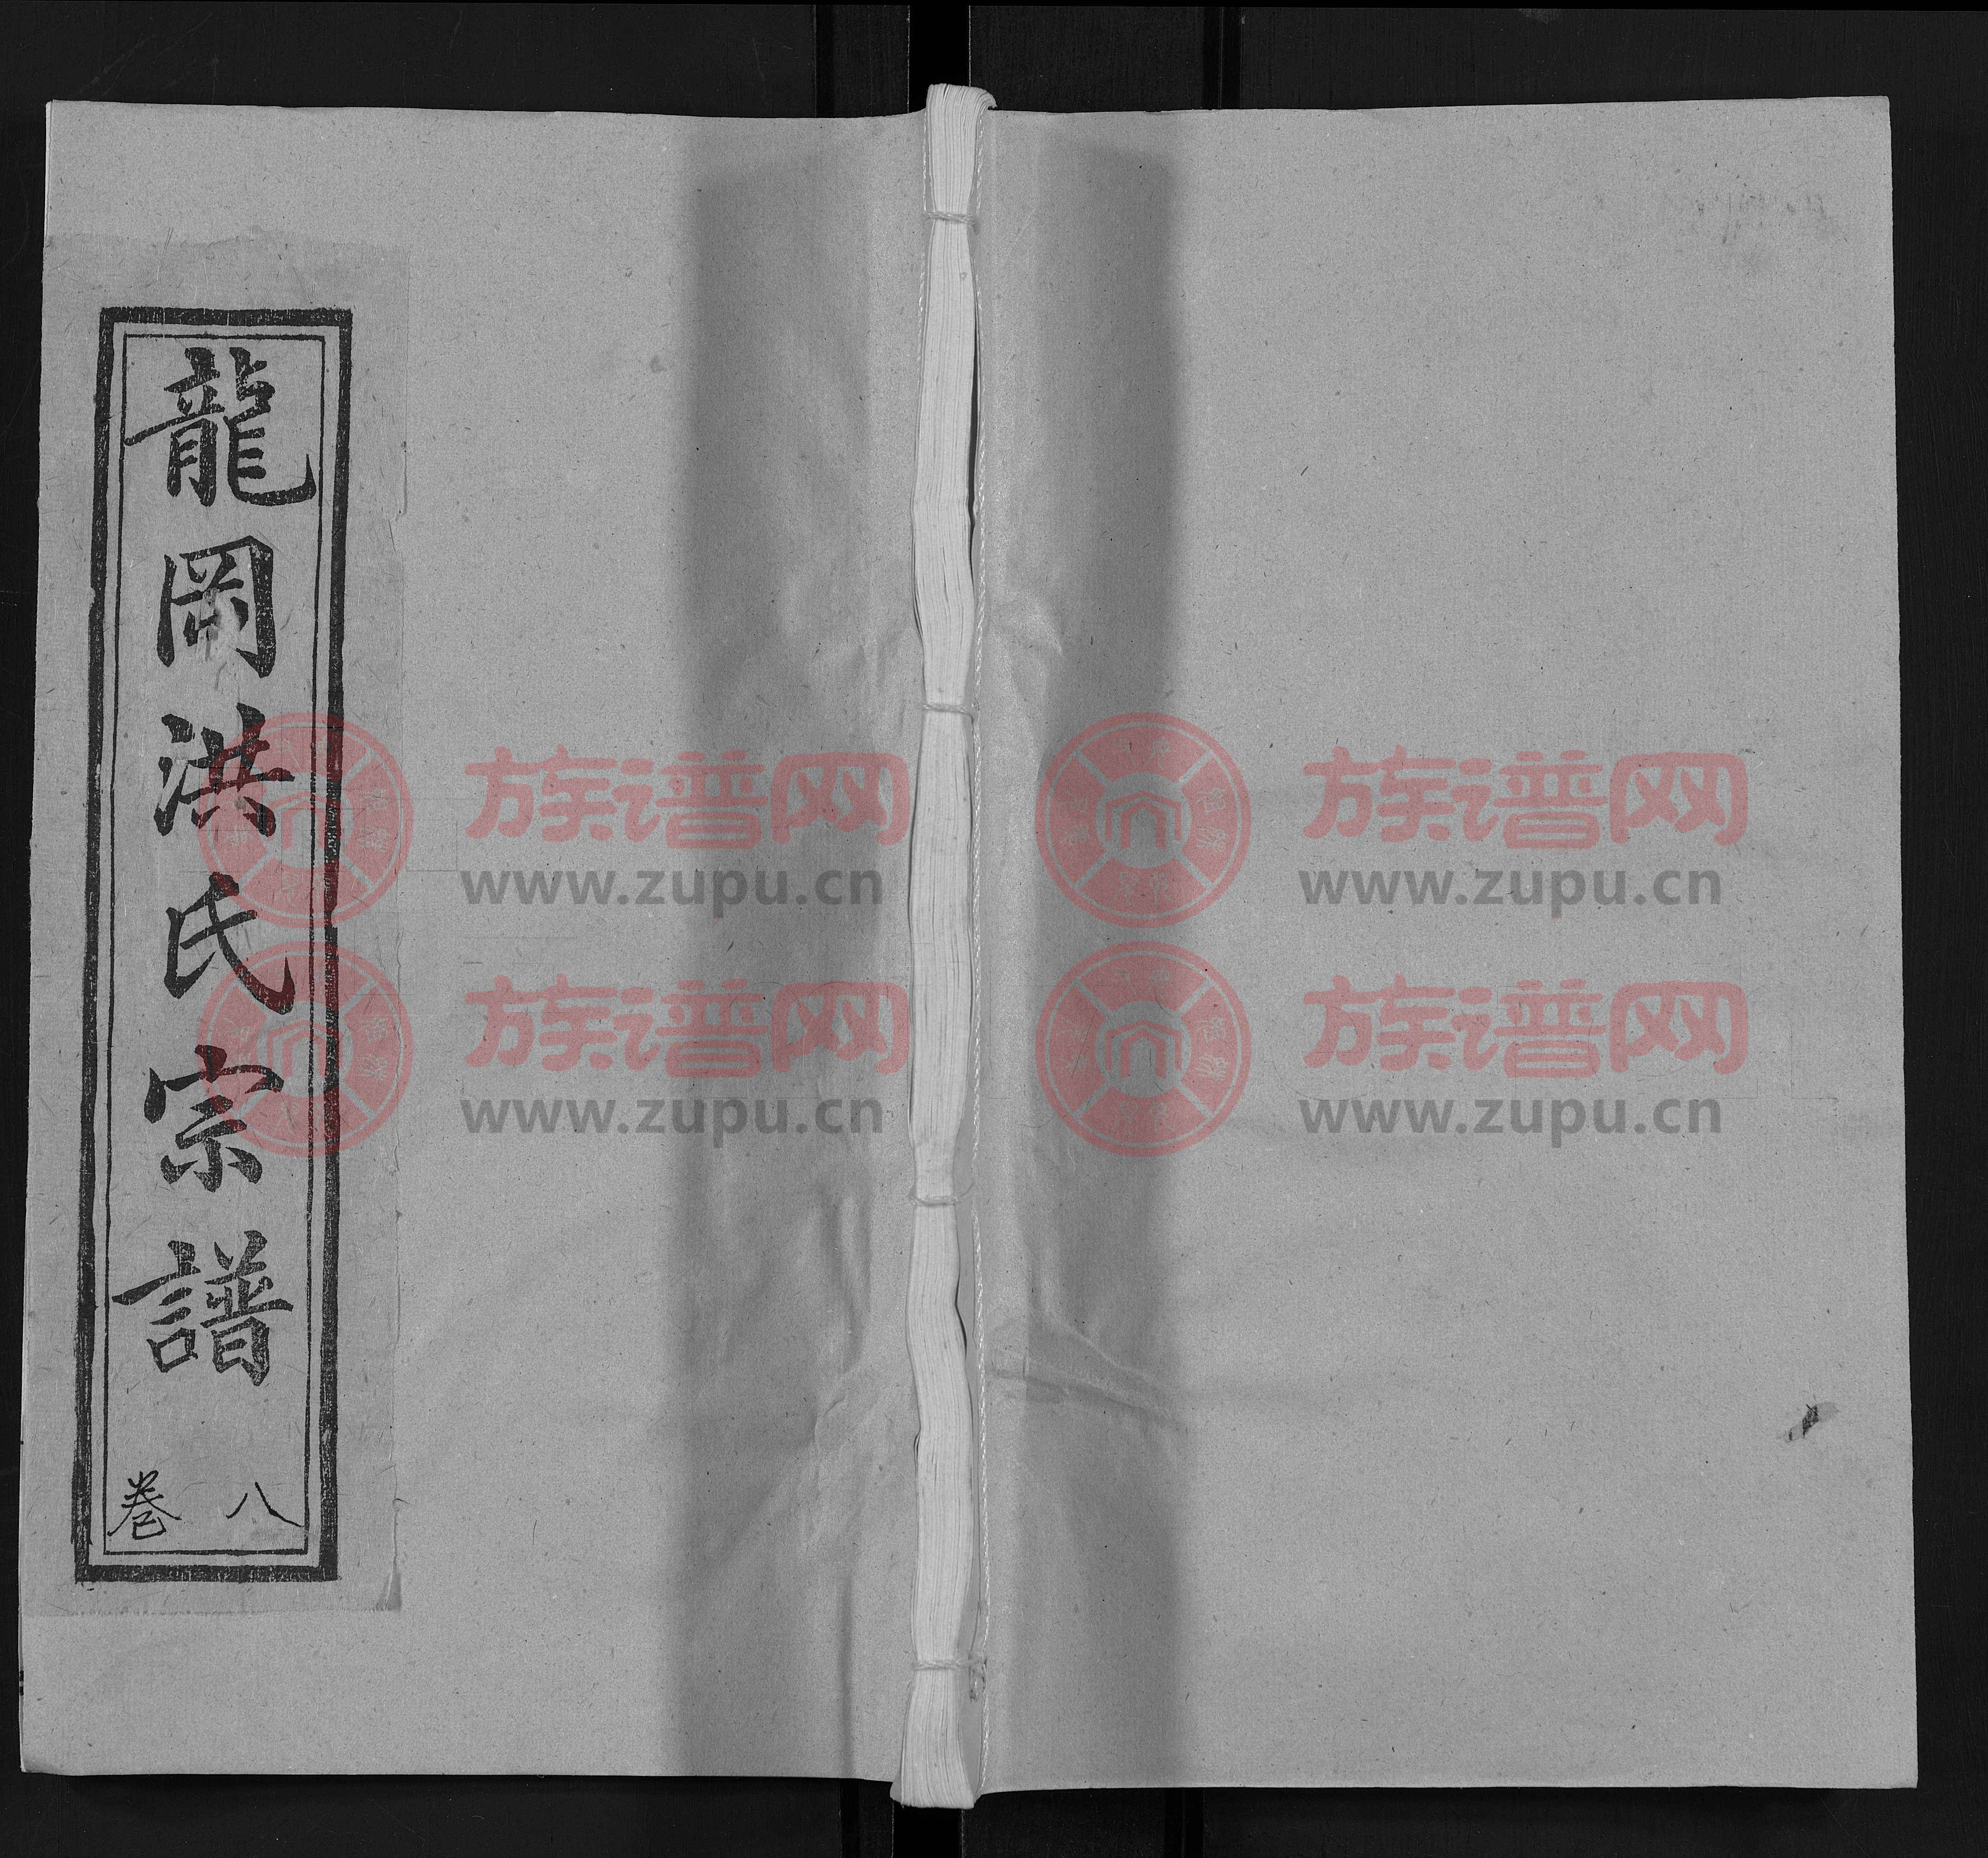 龍岡洪氏宗譜
卷八
族谱网
www.zupu.cn
族谱网
www.zupu.cn
族谱网
www.zupu.cn
族谱网
www.zupu.cn